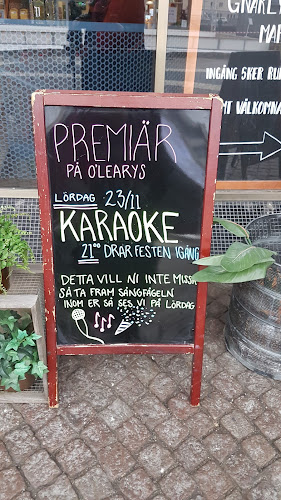 GNARLY
MAR
INGÅNG 5KER RUN
MT VÄLKOMNA
PREMIÄR
PÅ O'LEARYS
LÖRDAG 23/11
KARAOKE
21⁰⁰ DRAR FESTEN IGÅNG
DETTA VILL NI INTE MISSA
SÅ TA FRAM SÅNGFÅGELN
INOM ER SÅ SES VI PÅ LÖRDAG